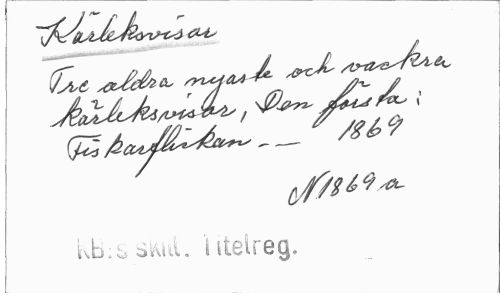 Kärleksvisor
Tre aldra nyaste och vackra
kärleksvisor, Den första:
Fiskarflickan -- 1869
N 1869 a
KB:s skill. Titelreg.